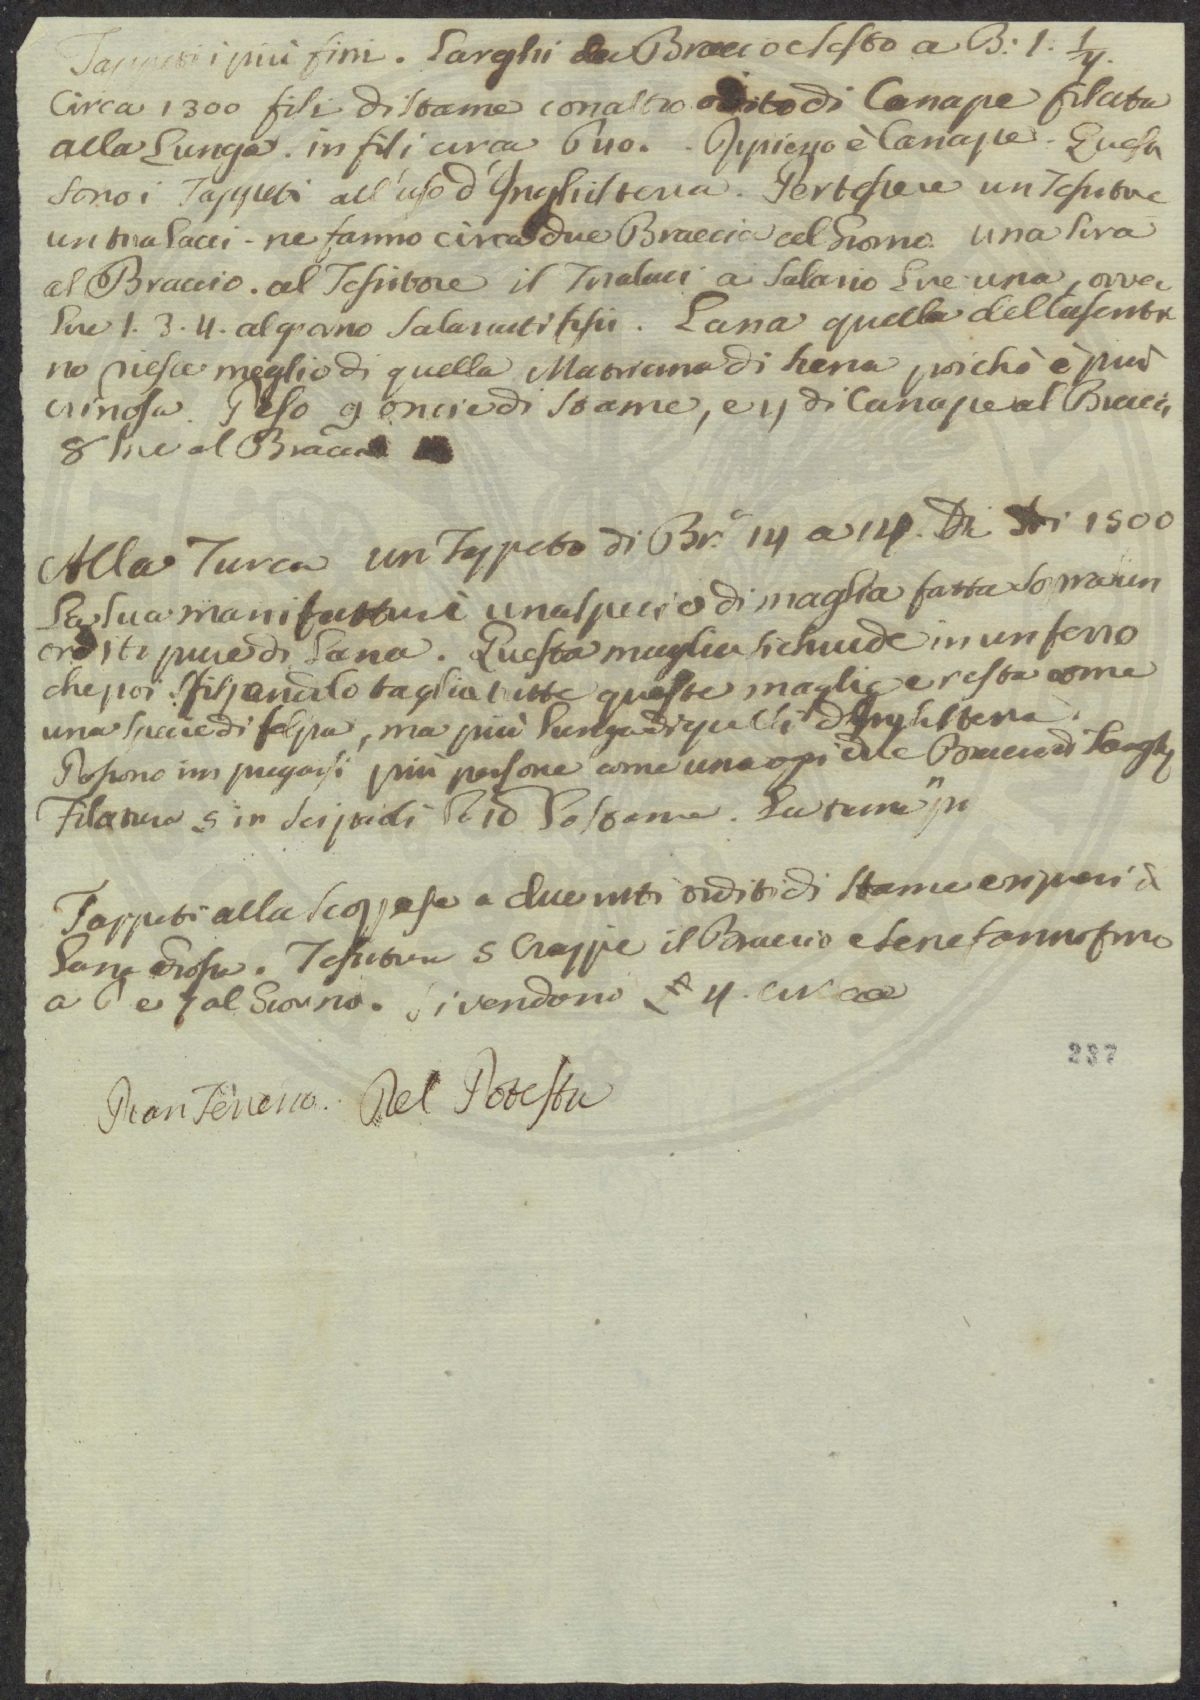 Tappeti i più fini. Larghi da Braccio e Sesto a B: 1. 1/4.
Circa 1300 fili di stame con altro ordito di Canape filata
alla Lunga. in fili circa 640. Ripieno è Canape. Questi
sono i Tappeti all'uso d'Inghilterra. Per tessere un Tessitore
un tira Lacci - ne fanno circa due Braccia al Giorno. una lira
al Braccio. al Tessitore il Tiralacci a Salario Lire una, ovver
Lire 1. 3. 4. al giorno Salariati fissi. Lana quella dell'
no riesce meglio di quella Matricina di poichè è più
crinosa. Peso 9 oncie di Stame, e 4 di Canape al Braccio
8 lire al Braccio
Alla Turca un Tappeto di Br.a 14 a 14. Di 1500
La sua manifattura è una specie di maglia fatta sopra un
ordito pure di Lana. Questa maglia si chiude in un ferro
che poi sfilandolo taglia tutte queste maglie e resta come
una specie di felpa, ma più lunga di quelli d'Inghilterra.
Possono impiegarsi più persone come una ogni due Braccia di Largh
Filatura 5 in sei paoli lo Stame. La trama
Tappeti alla Scozzese a due orditi di Stame e ripieni di
Lana grossa. Tessitura 5 Crazzie il Braccio e se ne fanno fino
a 6 e 7 al Giorno. Si vendono £ 4. circa
237
Pian Terreno. Del Potestà